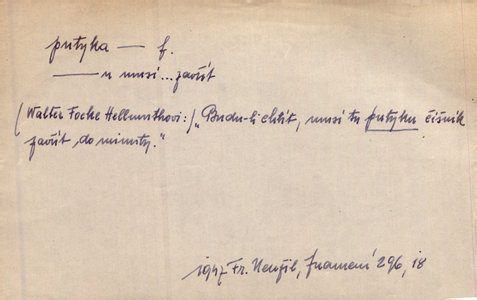 putyka — f.
— u musí ... zavřít
(Walter Focke Hellmuthovi:) „Budu-li chtít, musí tu putyku číšník
zavřít do minuty."
1947 Fr. Neužil, Znamení 296, 18